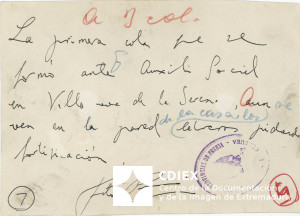 A 3 col.
La primera cola que se
formó ante Auxilio Social
en Villa nueva de la Serena, Aun se
ven en la pared de las casas los letreros pidiendo
fortificación
7
CDIEX
Centro de la Documentación
y de la Imagen de Extremadura